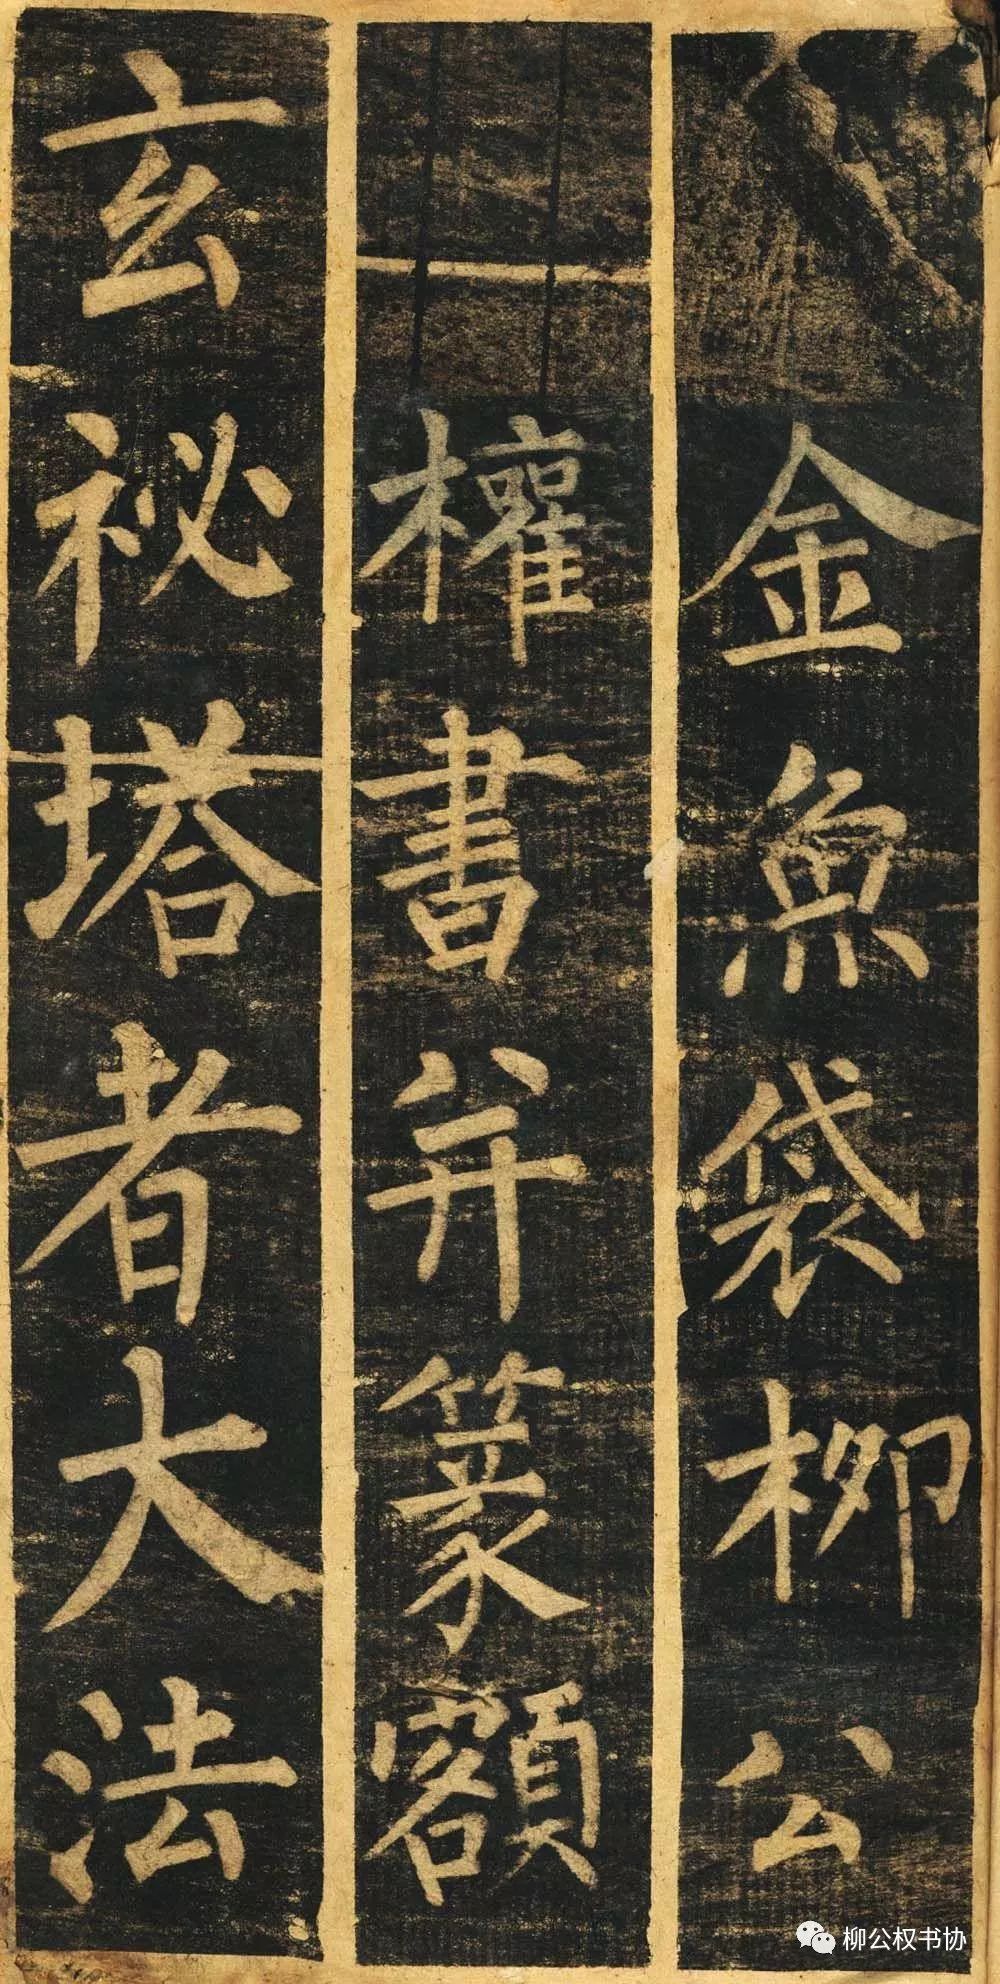 金魚袋柳公
權書并篆額
玄祕塔者大法
柳公权书协